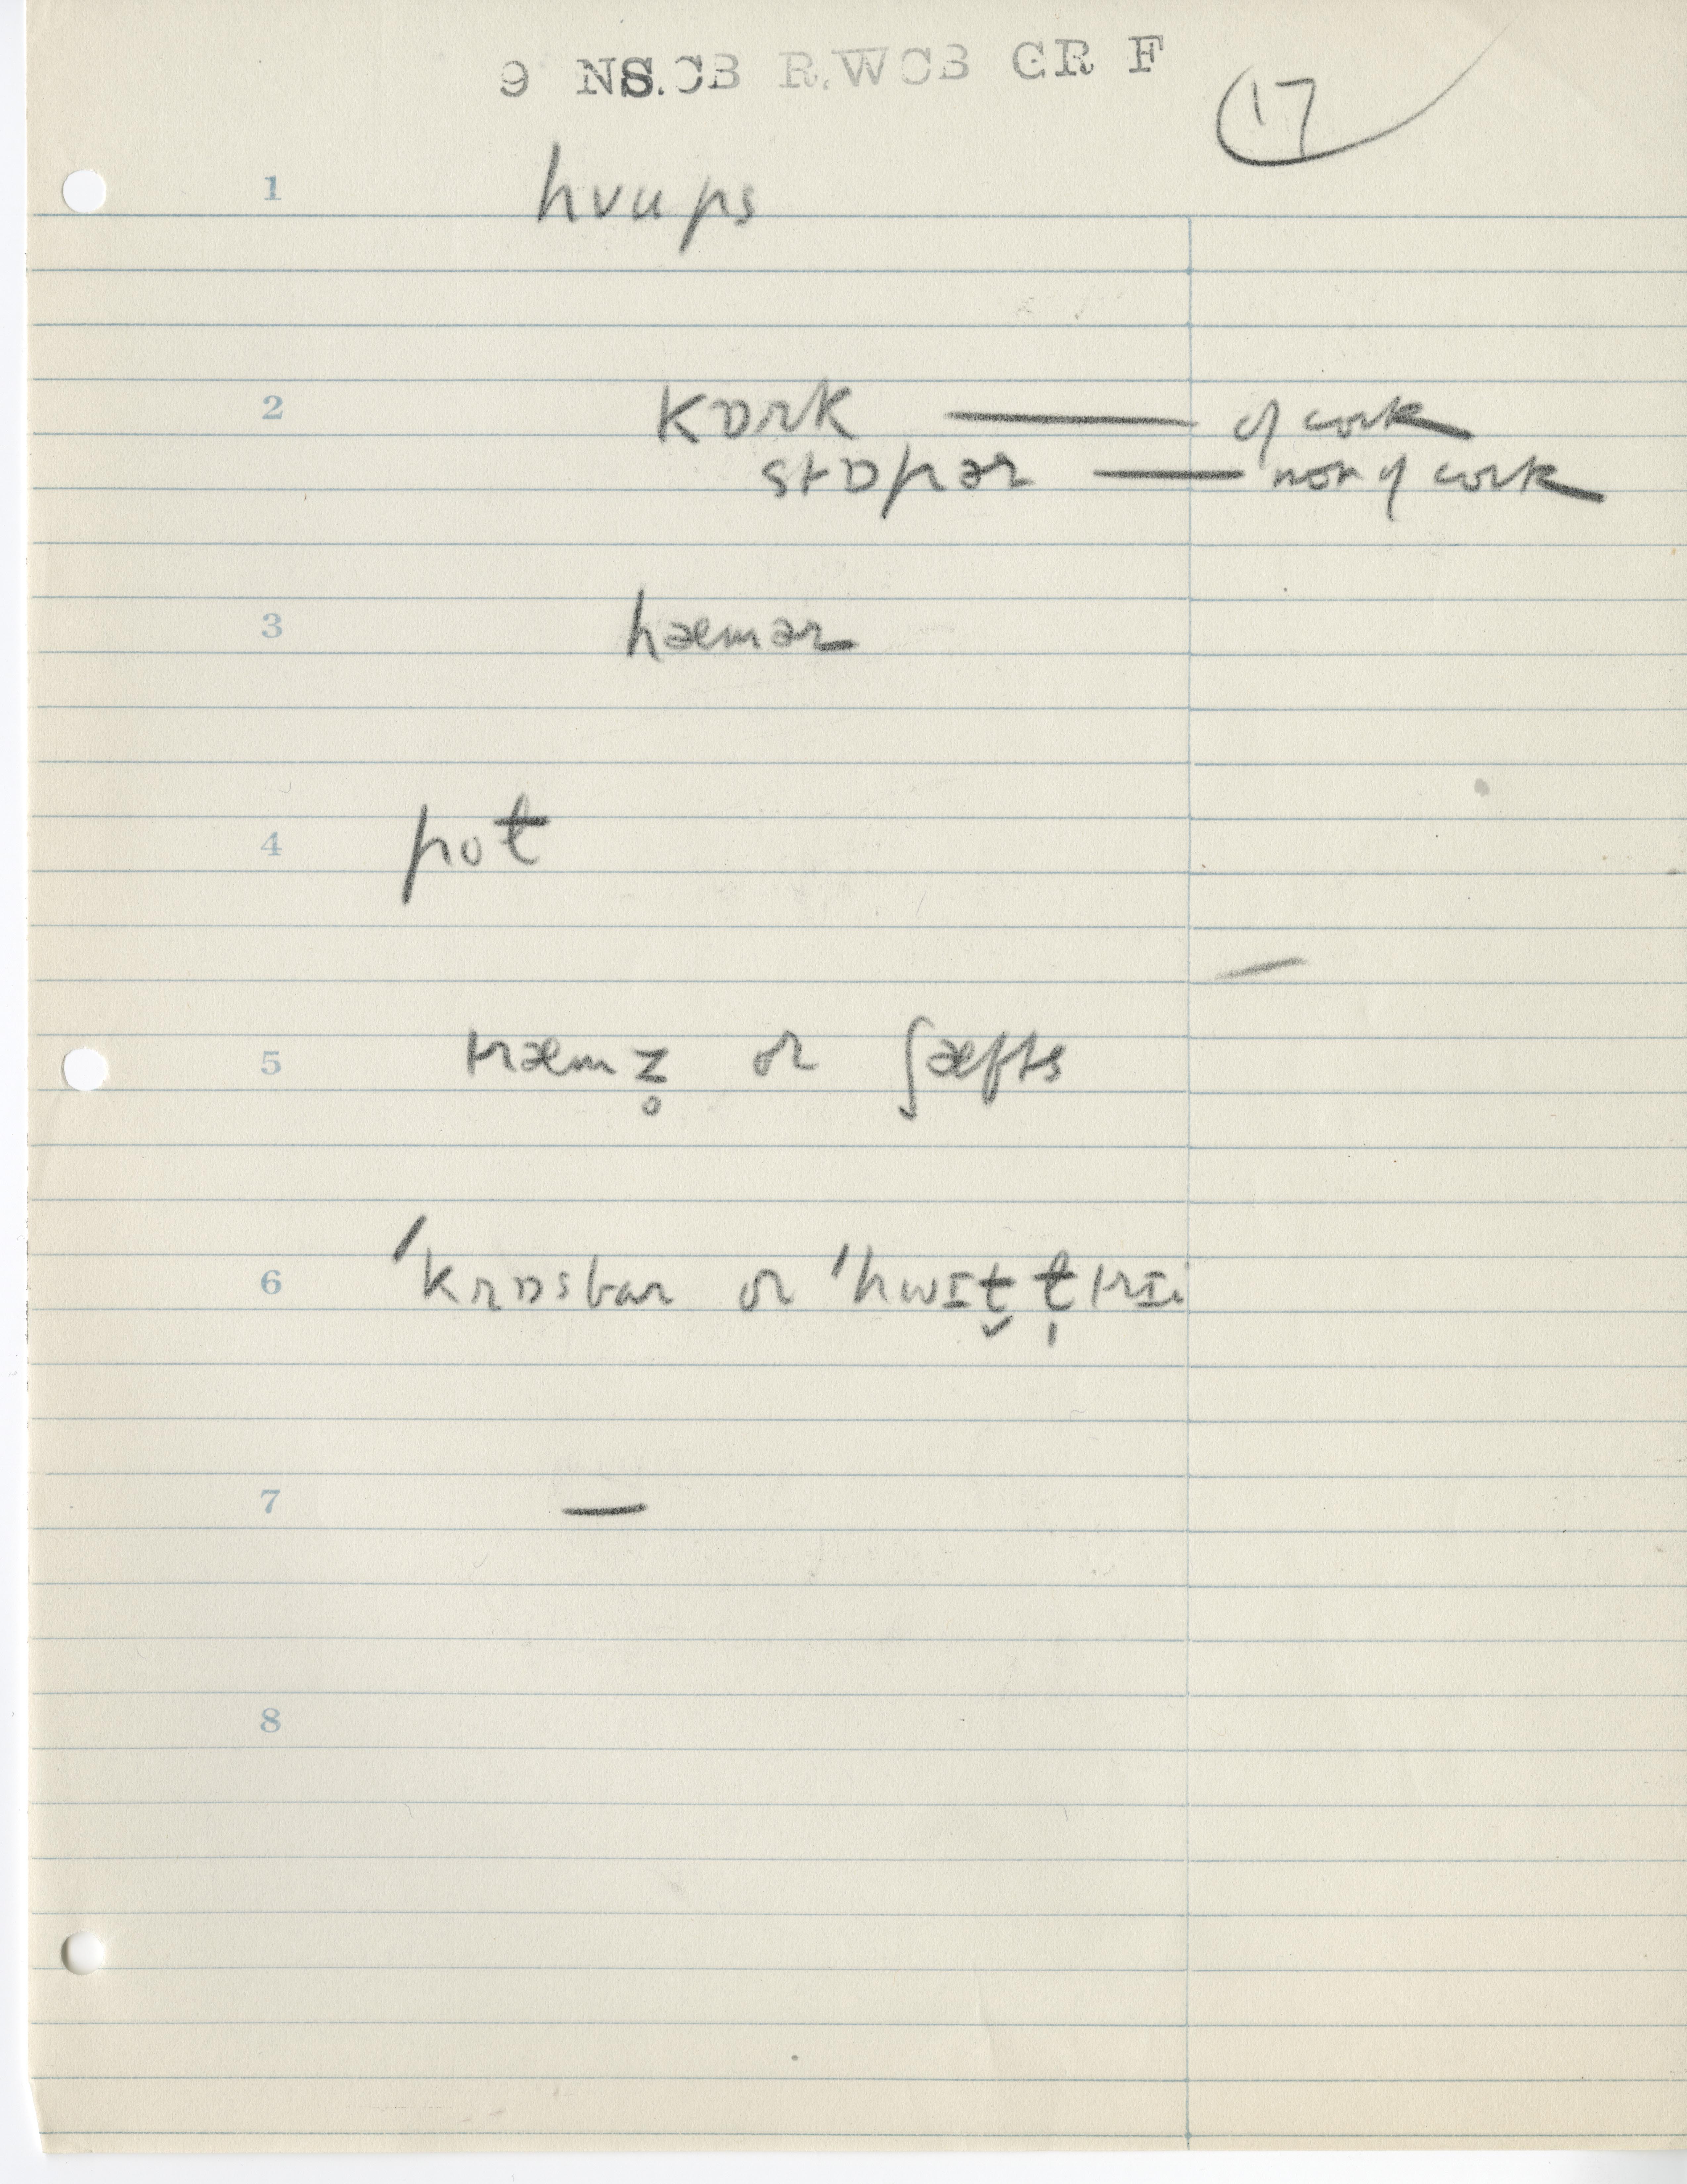 9 NS.CB R.WCB GR F
17
1 hʋups
2 kɒrk — of cork
stɒpər — not of cork
3 hæmər
4 pot
5 træmz̥ or ʃæfts
6 ˈkrɒsbar or ˈhwɪt̬ t̩trɪ
7 —
8